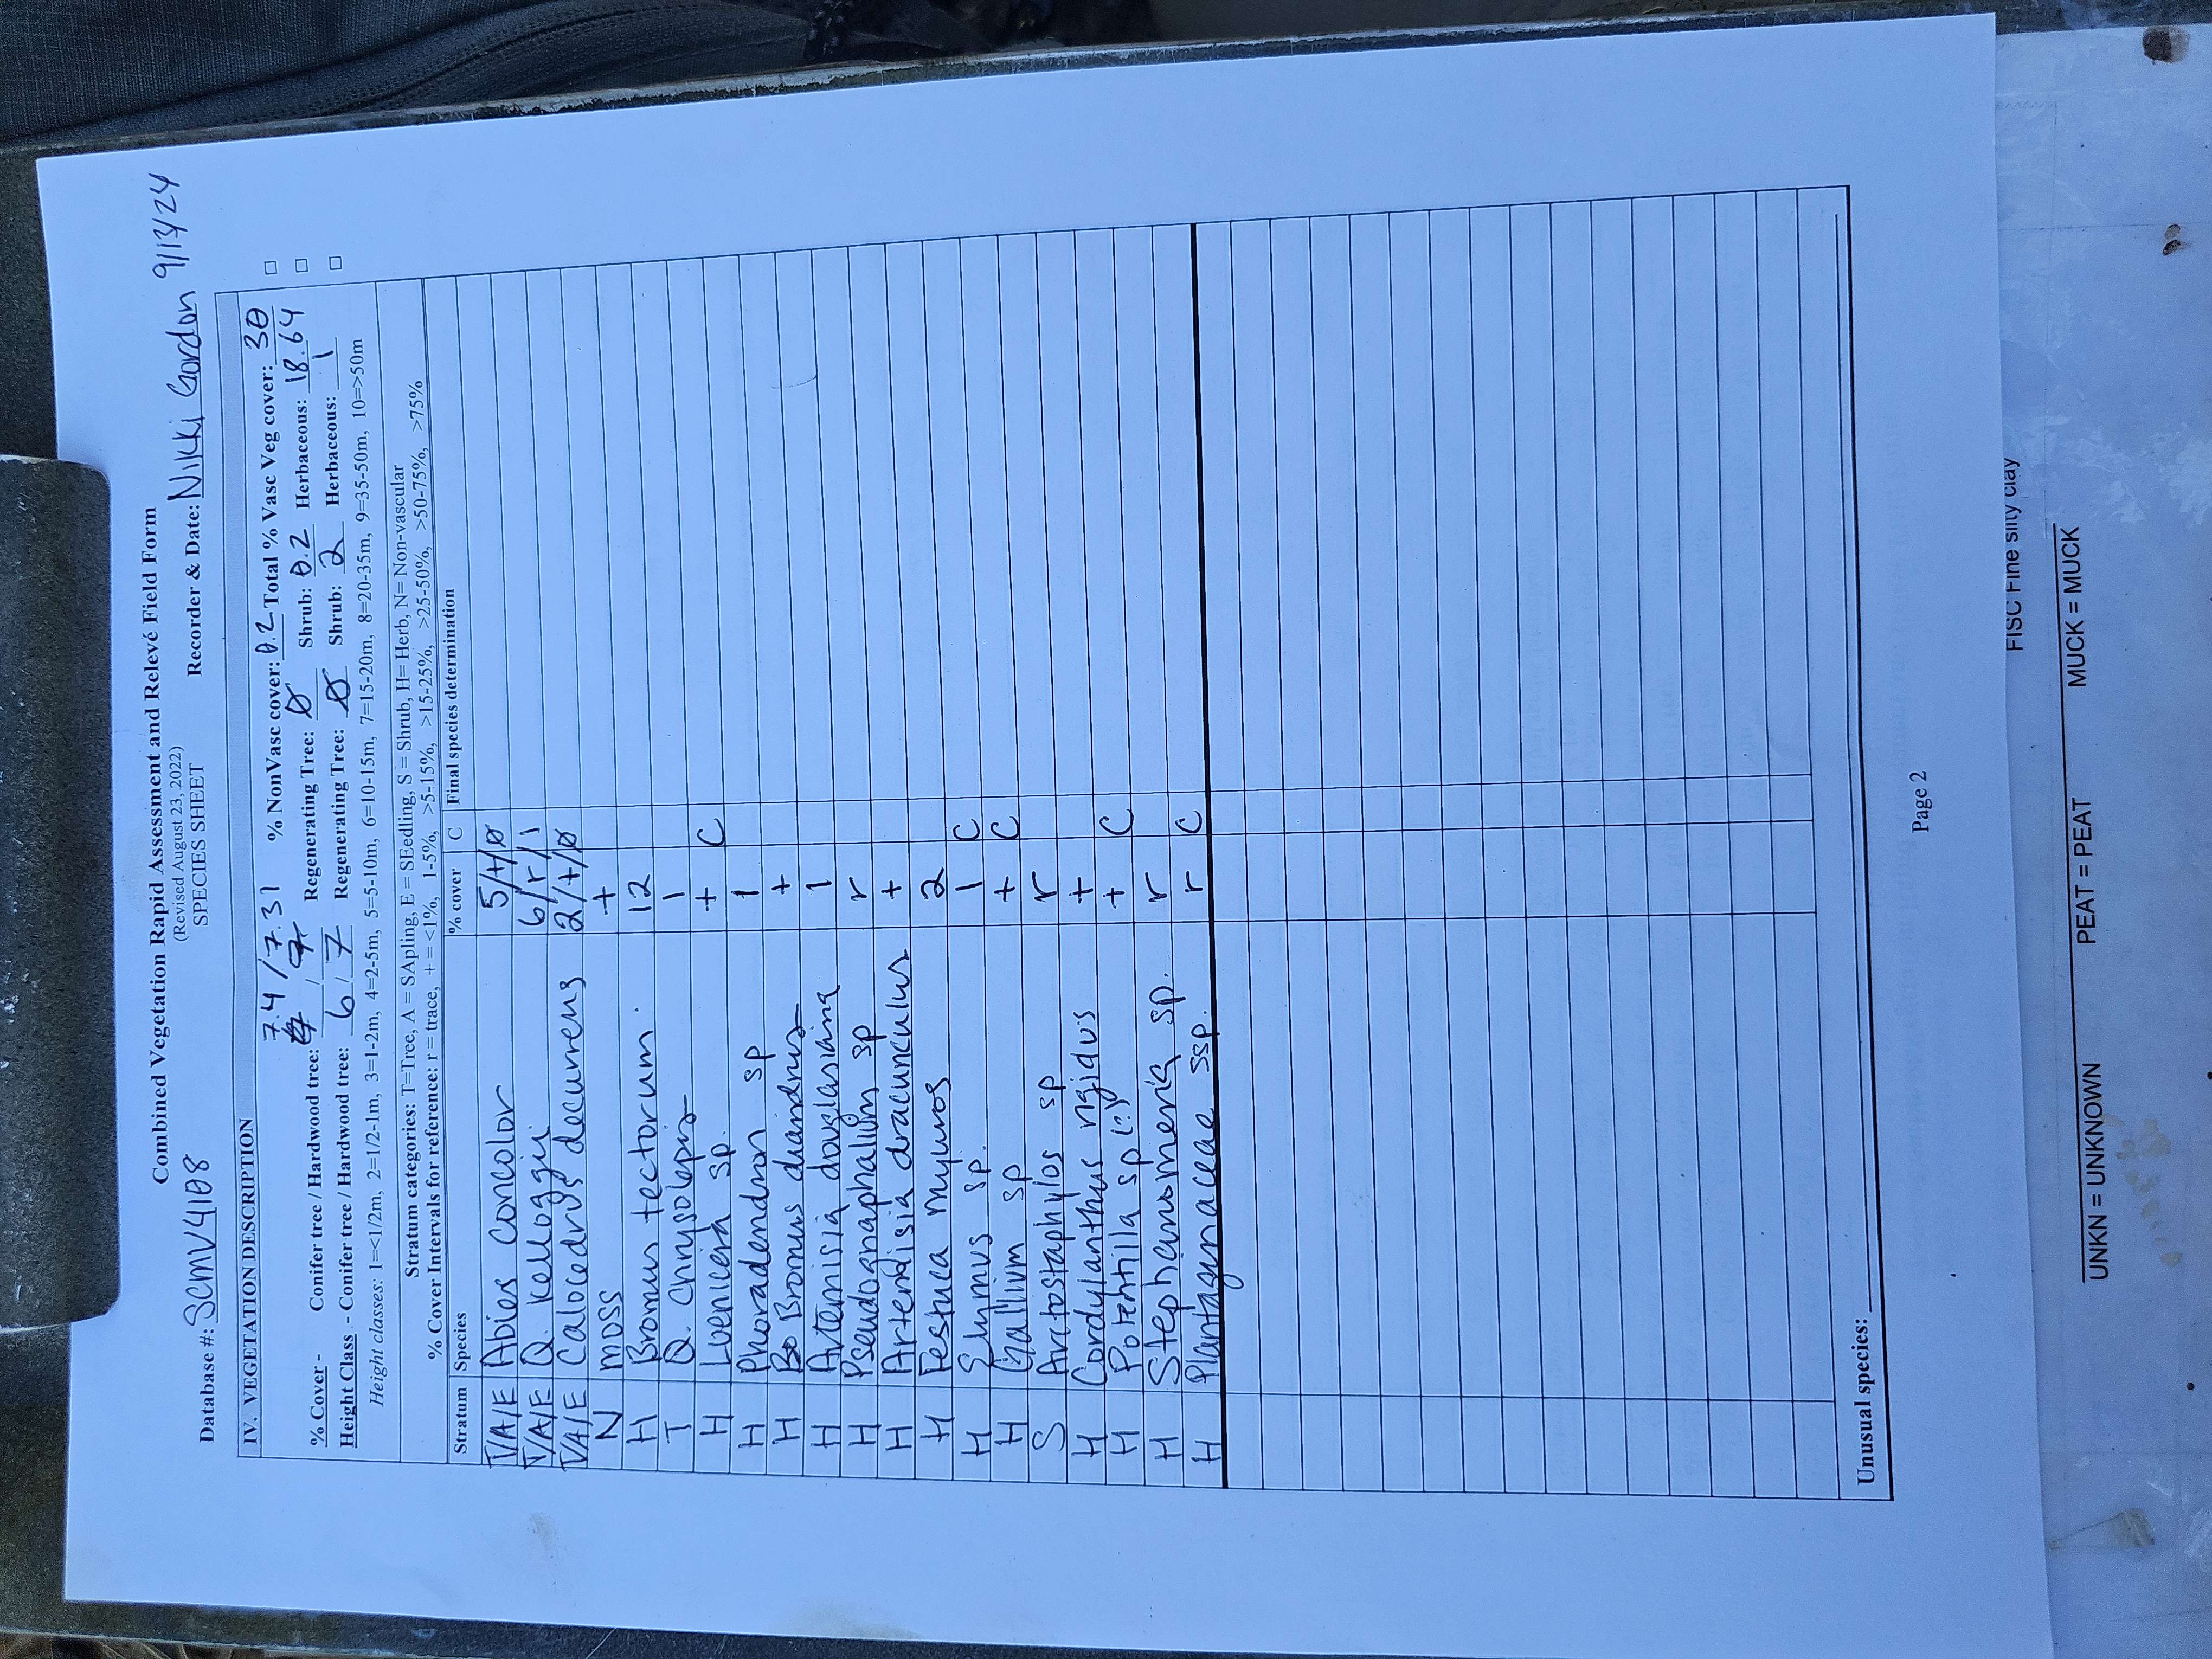 Combined Vegetation Rapid Assessment and Relevé Field Form
(Revised August 23, 2022)
SPECIES SHEET
Database #: SCMV4108 Recorder & Date: Nikki Gordon 9/13/24
IV. VEGETATION DESCRIPTION
7.4 / 7.31 % NonVasc cover: 0.2 Total % Vasc Veg cover: 30 □
% Cover - Conifer tree / Hardwood tree: / Regenerating Tree: Ø Shrub: 0.2 Herbaceous: 18.64 □
Height Class - Conifer tree / Hardwood tree: 6 / 7 Regenerating Tree: Ø Shrub: 2 Herbaceous: 1 □
Height classes: 1=<1/2m, 2=1/2-1m, 3=1-2m, 4=2-5m, 5=5-10m, 6=10-15m, 7=15-20m, 8=20-35m, 9=35-50m, 10=>50m
Stratum categories: T=Tree, A = SApling, E = SEedling, S = Shrub, H= Herb, N= Non-vascular
% Cover Intervals for reference: r = trace, + = <1%, 1-5%, >5-15%, >15-25%, >25-50%, >50-75%, >75%
Stratum Species % cover C Final species determination
T/A/E Abies concolor 5/+/Ø
T/A/E Q. kelloggii 6/r/1
T/A/E Calocedrus decurrens 2/+/Ø
N moss +
H Bromus tectorum. 12
T Q. chrysolepis 1
H Loenicera sp. + C
H Phoradendron sp 1
H Bromus diandrus +
H Artemisia douglasiana 1
H Pseudognaphalium sp r
H Artemisia dracunculus +
H Festuca myuros 2
H Elymus sp. 1 C
H Gallium sp + C
S Arctostaphylos sp r
H Cordylanthus rigidus +
H Potentilla sp (?) + C
H Stephanomeria sp. r
H Plantaginaceae ssp. r C
Unusual species:
Page 2
FISC Fine silty clay
UNKN = UNKNOWN PEAT = PEAT MUCK = MUCK